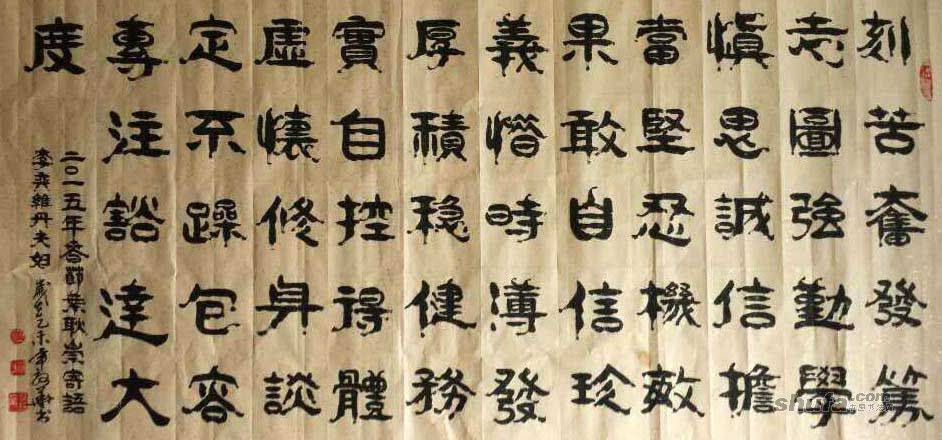 刻苦奮發篤
志圖強勤學
慎思誠信擔
當堅忍機敏
果敢自信珍
義惜時薄發
厚積穩健務
實自控得體
虛懷修身談
定不躁包容
專注豁達大
度
二〇一五年春節葉耿崇寄語
李奕維丹夫婦 歲在乙未年
shufa.com